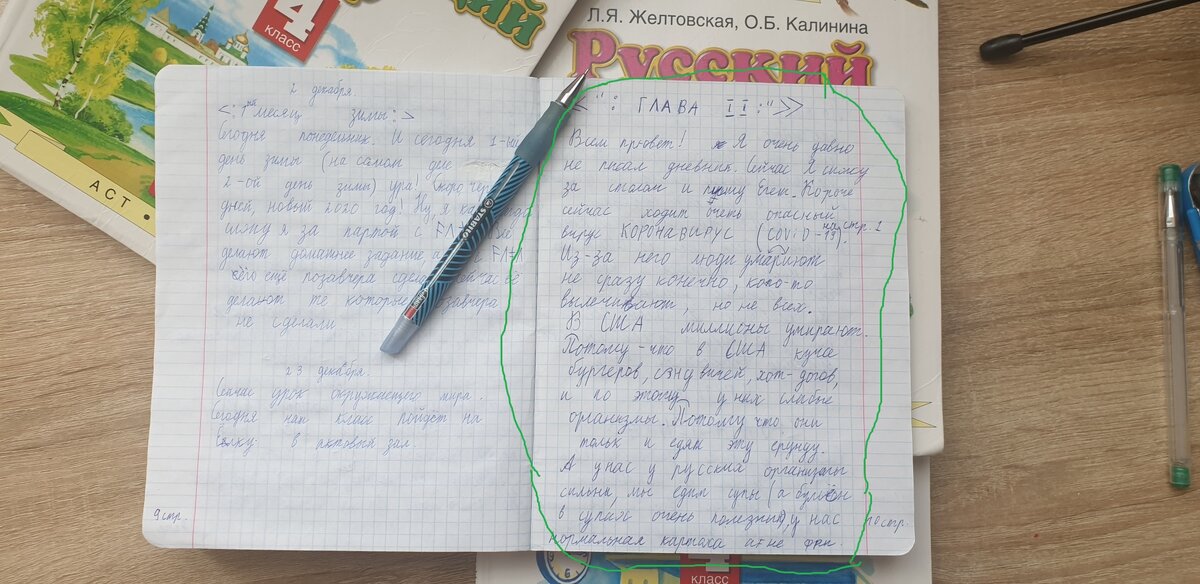 4
класс
АСТ
Л.Я. Желтовская, О.Б. Калинина
Русский
2 декабря.
<:1ый месяц зимы:>
Сегодня понедельник. И сегодня 1-ый
день зимы (на самом деле
2-ой день зимы) ура! Скоро чер
дней, новый 2020 год! Ну, я
сижу я за партой с
делают домашнее задание а
кого ещё позавчера сейчас
делают те которые позавчера
не сделали
23 декабря.
Сейчас урок окружающего мира.
Сегодня наш класс пойдет на
ёлку в актовый зал.
9 стр.
STABILO
<": ГЛАВА II:">>
Всем привет! Я очень давно
не писал дневник. Сейчас Я сижу
за столом и пишу Его. Короче
сейчас ходит очень опасный
вирус КОРОНАВИРУС (COVID-19). на стр. 1
Из-за него люди умариют
не сразу конечно, кого-то
вылечивают, но не всех.
В США миллионы умирают.
Потому-что в США куча
бургеров, сэндвичей, хот-догов,
и по этому у них слабые
организмы. Потому что они
тольк и едят эту ерунду.
А у нас у русских организмы
сильны, мы едим супы (а бульён
в супах очень полезный), у нас
нормальная картоха а не фри.
10 стр.
4
класс